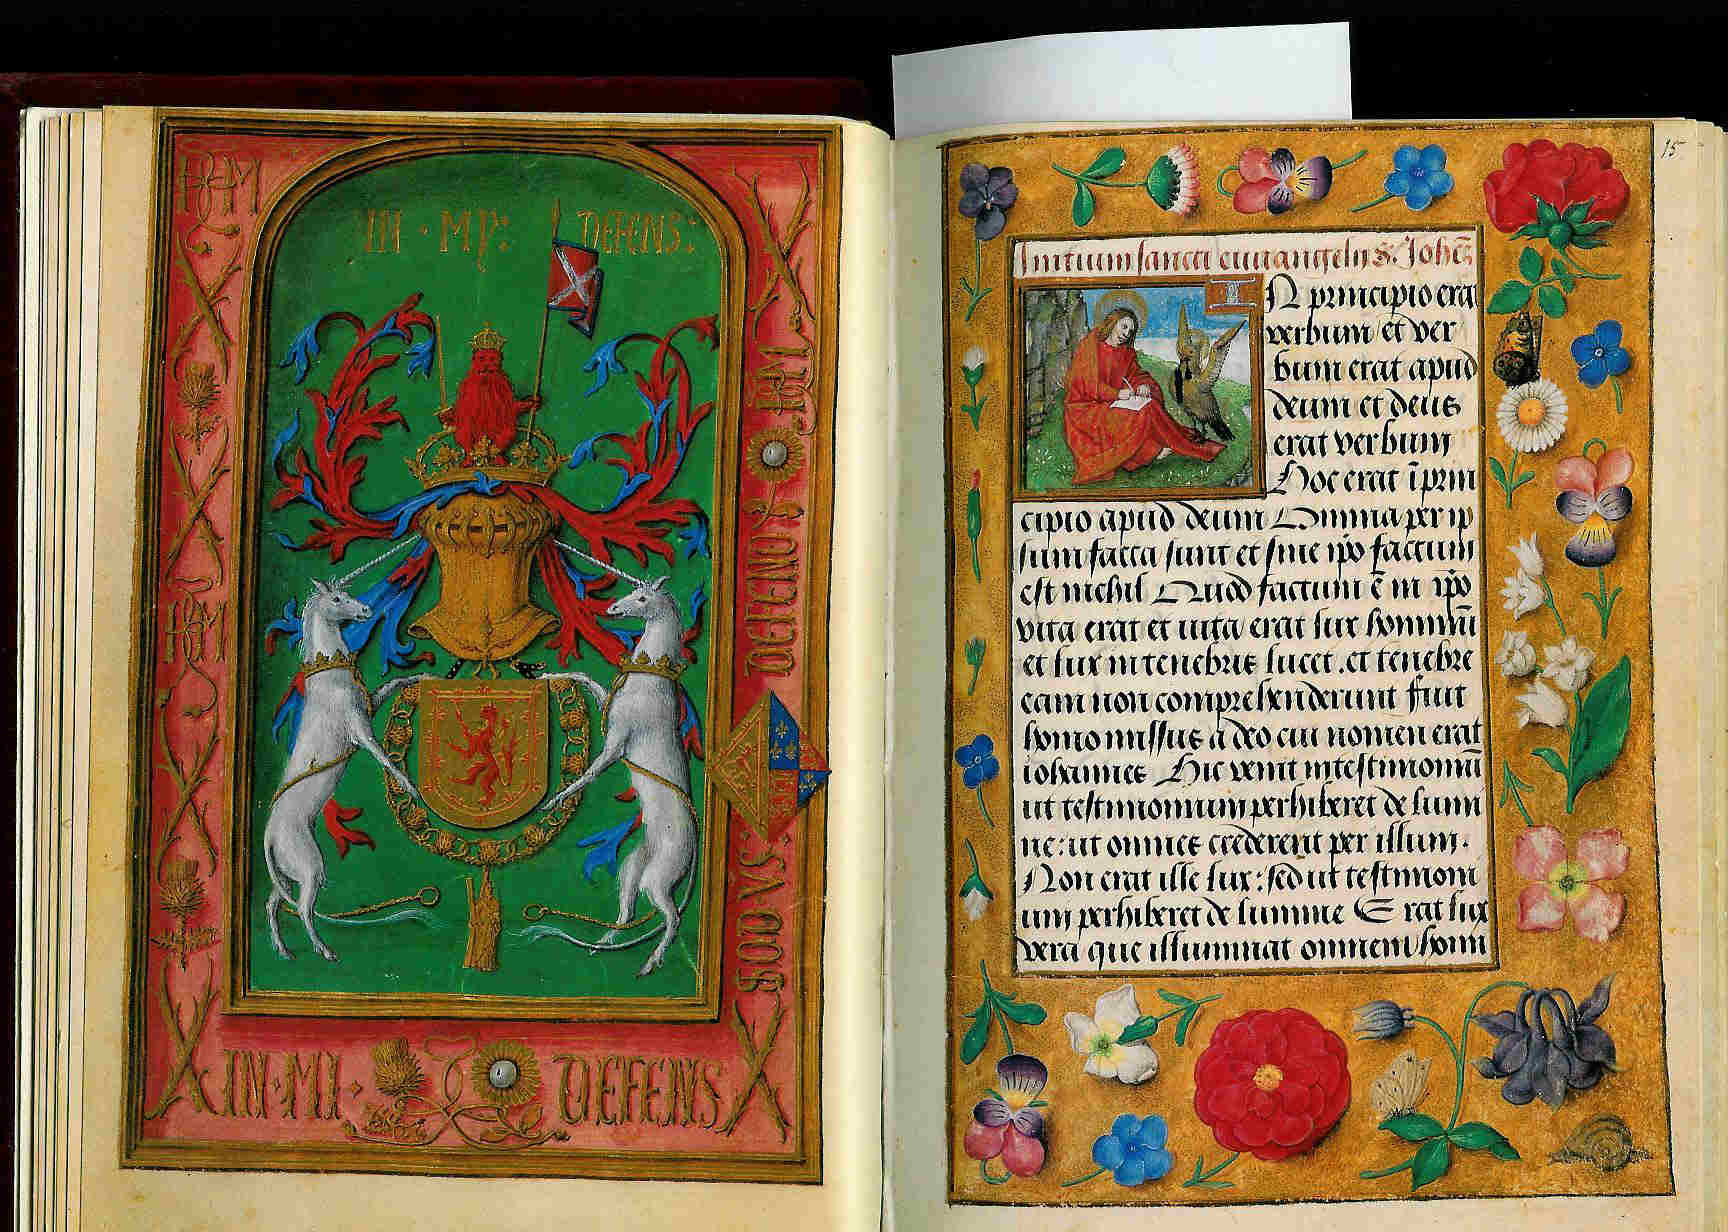 IN · MY: DEFENS:
IN · MI · DEFENS
15
Initium sancti euuangelij S. Joħēs
IN principio erat
verbum et ver
bum erat apud
deum et deus
erat verbum
Hoc erat ī prin
cipio apud deum Omnia per ip
sum facta sunt et sine ip̄o factum
est nichil Quod factum ē in ip̄o
vita erat et uita erat lux hominū
et lux in tenebris lucet . et tenebre
eam non comprehenderunt Fuit
homo missus a deo cui nomen erat
iohannes Hic venit in testimoniū
ut testimonium perhiberet de lumi
ne : ut omnes crederent per illum .
Non erat ille lux : sed ut testimoni
um perhiberet de lumine Erat lux
vera que illuminat omnem homi